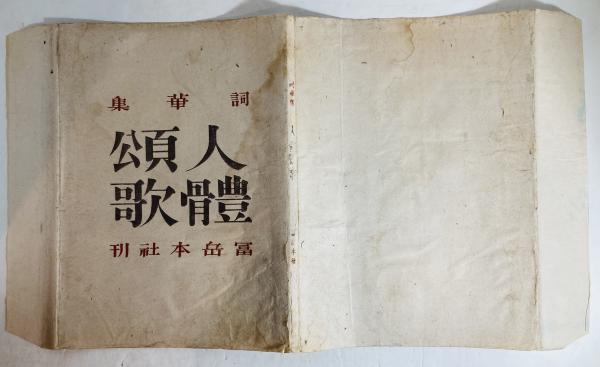 詞華集
人體
頌歌
冨岳本社刊